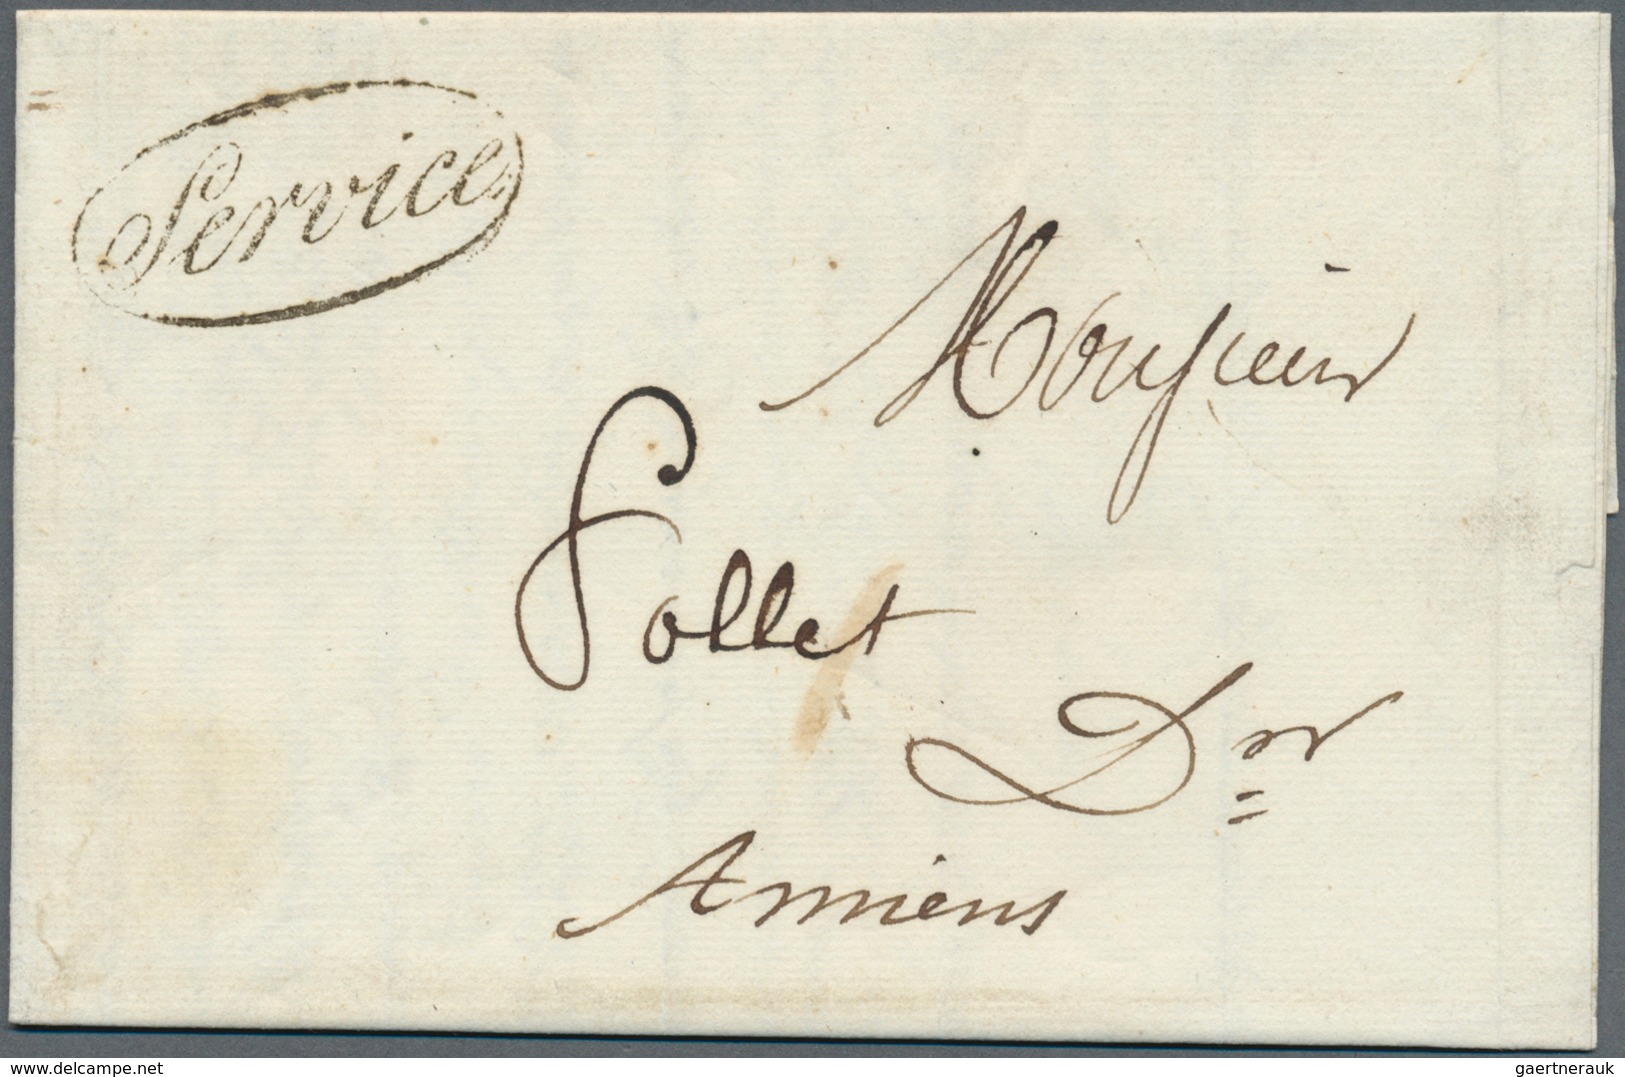 Service
Monsieur
Follet
Dr
Amiens
www.delcampe.net
gaertnerauk